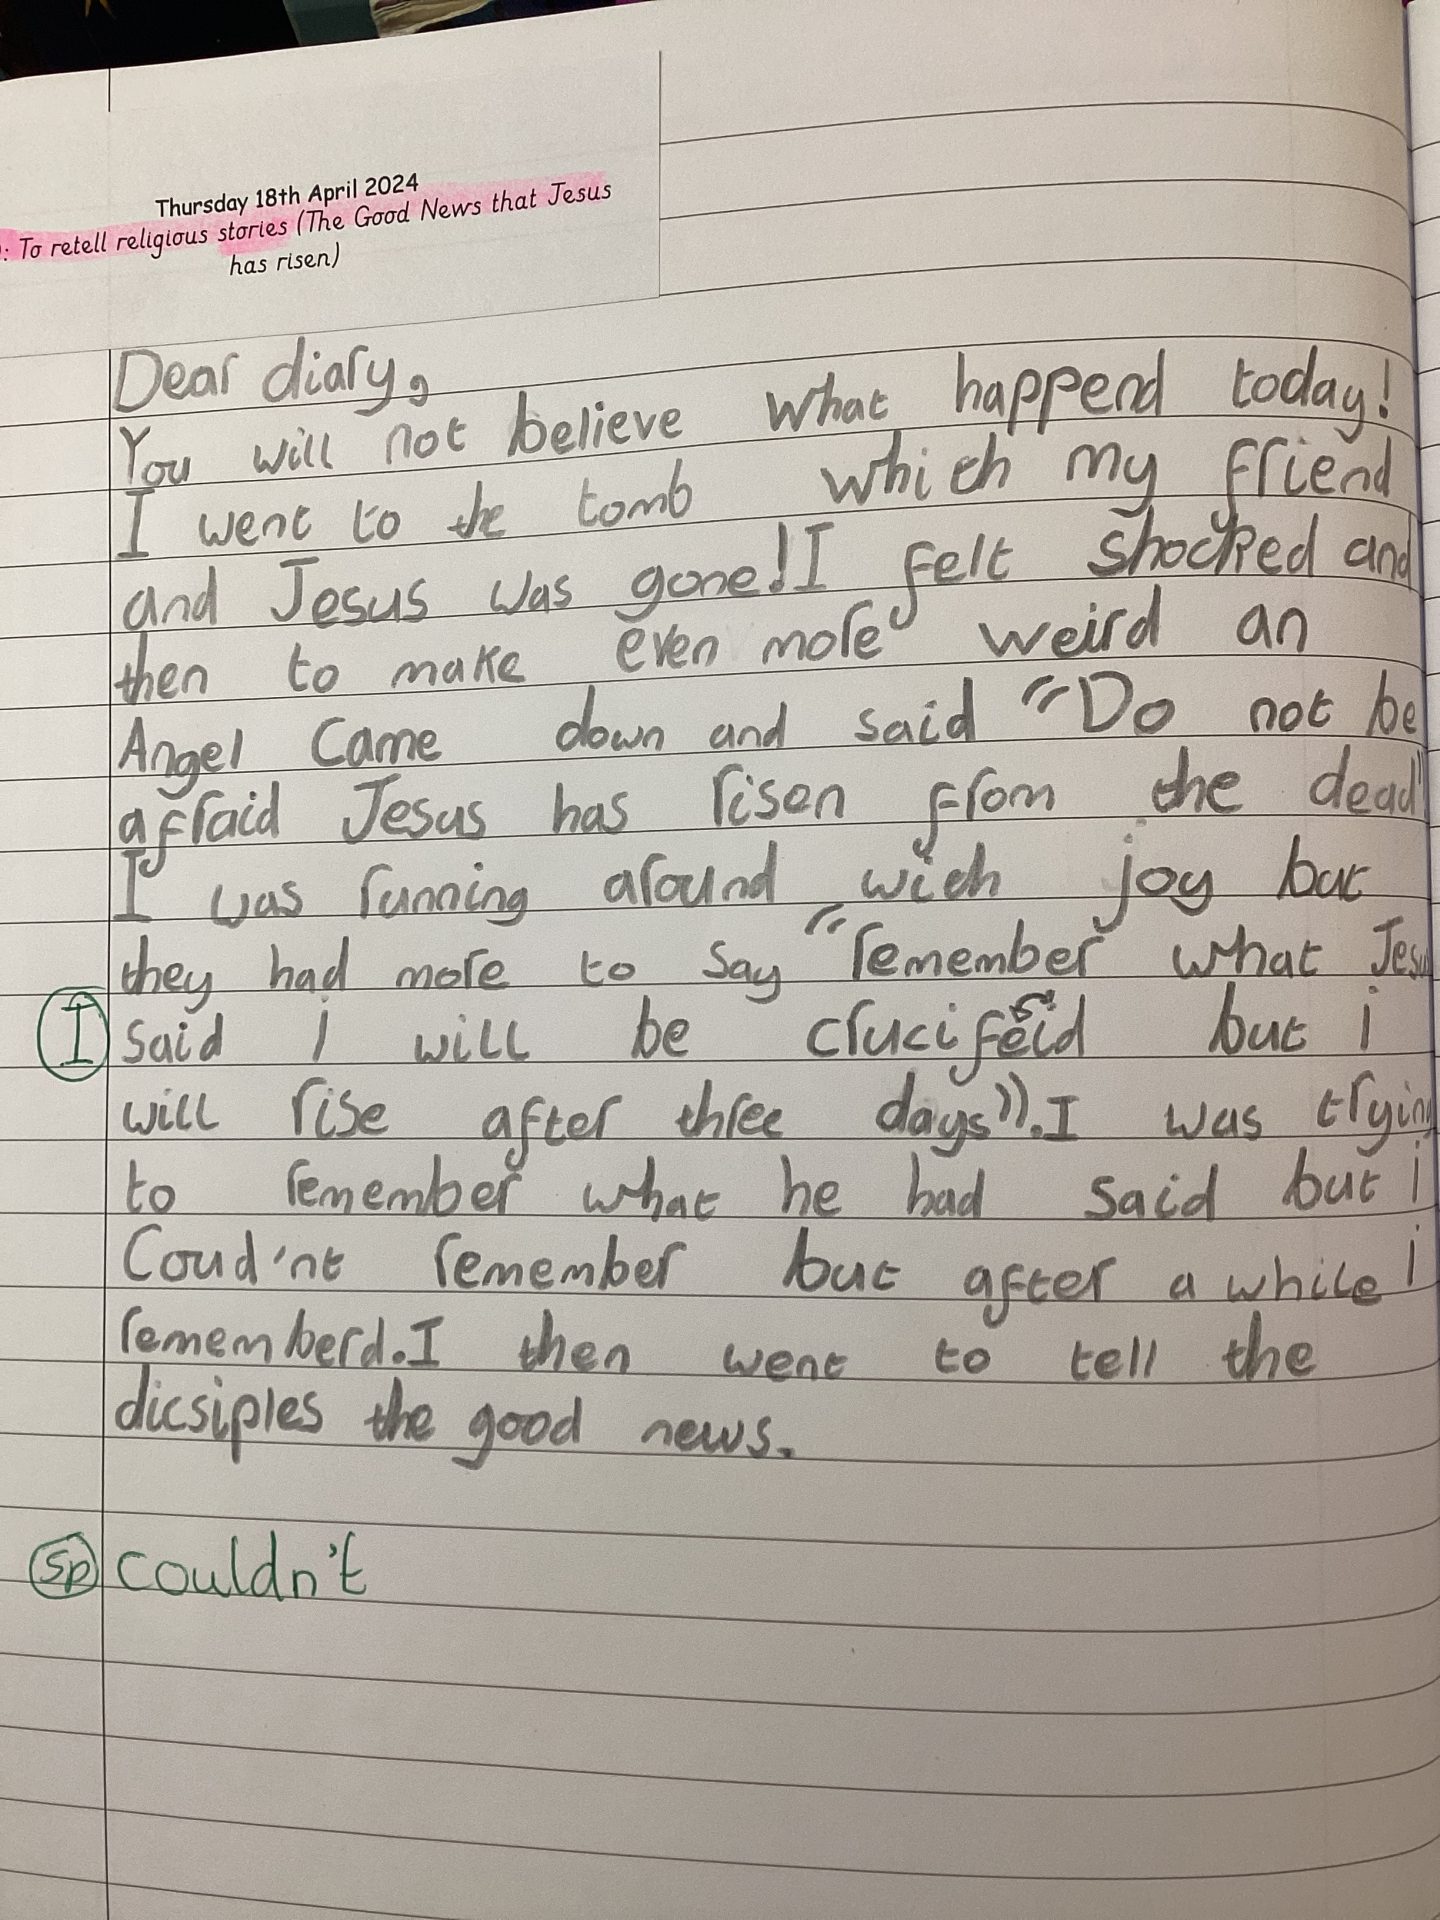 Thursday 18th April 2024
: To retell religious stories (The Good News that Jesus
has risen)
Dear diary,
You will not believe what happend today!
I went to the tomb which my friend
and Jesus was gone! I felt shocked and
then to make even more weird an
Angel Came down and said "Do not be
afraid Jesus has risen from the dead"
I was running around wich joy but
they had more to say "remember what Jesu
I said i will be crucifeid but i
will rise after three days". I was trying
to remember what he had said but i
Coud'nt remember but after a while i
rememberd. I then went to tell the
dicsiples the good news.
Sp couldn't